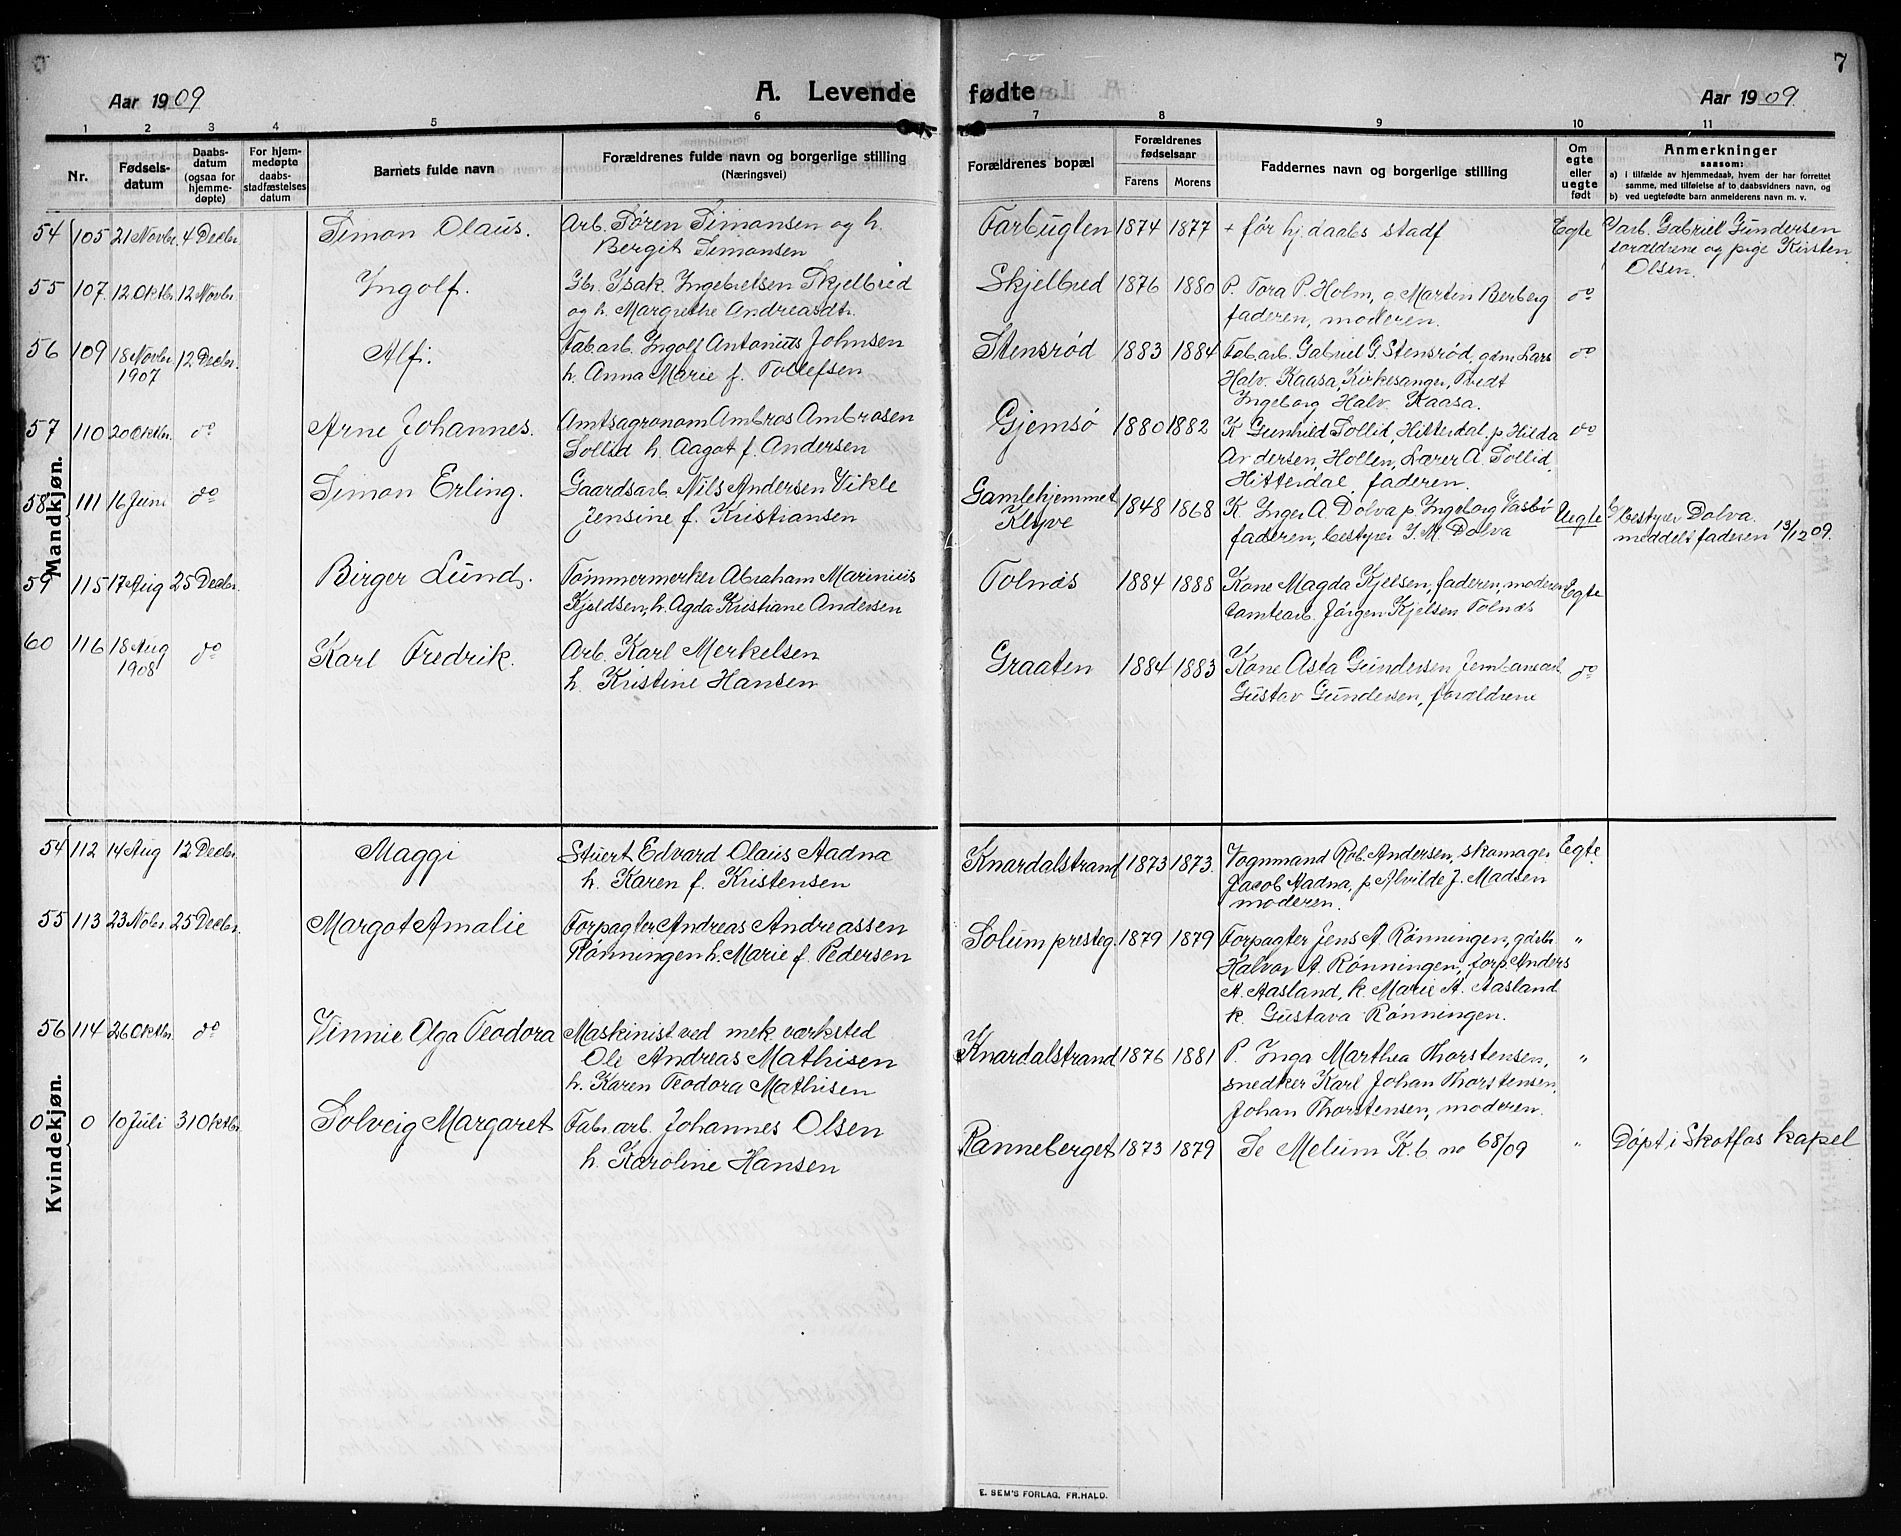 7
Aar 1909
A. Levende fødte
Aar 1909.
1 2 3 4 5 6 7 8 9 10 11
Nr.
Fødsels-
datum
Daabs-
datum
(ogsaa for
hjemme-
døpte)
For hjem-
medøpte
daabs-
stadfæstelses
datum
Barnets fulde navn
Forældrenes fulde navn og borgerlige stilling
(Næringsvei)
Forældrenes bopæl
Forældrenes
fødselsaar
Farens Morens
Faddernes navn og borgerlige stilling
Om
egte
eller
uegte
født
Anmerkninger
saasom:
a) i tilfælde av hjemmedaab, hvem der har forrettet
samme, med tilføielse af to daabsvidners navn, og
b) ved uegtefødte barn anmelderens navn m. v.
Mandkjøn.
54 105 21 Novbr. 4 Decbr. Simon Olaus. Arb. Søren Simonsen og h.
Bergit Simonsen
Farbugten 1874 1877 + før hj.daabs stadf Egte
Varb. Gabriel Gundersen
forældrene og pige Kirsten
Olsen.
55 107. 12 Oktbr. 12 Novbr. Ingolf. Gbr. Isak Ingebretsen Skjelbred
og h. Margrethe Andreasdtr.
Skjelbred 1876 1880 P. Tora P. Holm, g. Martin Berberg
faderen, moderen. do
56 109 18 Novbr. 1907 12 Decbr. Alf. Fab.arb. Ingolf Antonius Johnsen
h. Anna Marie f. Tollefsen
Stensrød 1883 1884 Fab.arb. Gabriel G. Stensrød, gdm Lars
Halv. Kaasa, Kirkesanger Tvedt
Ingeborg Halv. Kaasa. do
57 110 20 Oktbr. do Arne Johannes. Amtsagronom Ambros Ambrosen
Sollid h. Aagot f. Andersen
Gjemsø 1880 1882 K Gunhild Sollid, Hitterdal, p Hilda
Andersen, Hollen, Lærer A. Sollid,
Hitterdal, faderen. do
58 111 16 Juni do Simon Erling. Gaardsarb. Nils Andersen Vikle
Jensine f. Kristiansen
Gamlehjemmet
Klyve 1848 1868 K. Inger A. Dolva p Ingeborg Vasbø
faderen, bestyrer I. M. Dolva Uegte
bestyrer Dolva.
meddelt faderen 13/12 09.
59 115 17 Aug 25 Decbr. Birger Lund. Tømmermerker Abraham Marinius
Kjeldsen, h. Agda Kristiane Andersen
Tolnæs 1884 1888 Kone Magda Kjelsen, faderen, moderen
tomtearb. Jørgen Kjelsen Tolnæs Egte
60 116 18 Aug 1908 do Karl Fredrik. Arb. Karl Merkelsen
h. Kristine Hansen
Graaten 1884 1883 Kone Asta Gundersen, Jernbanearb
Gustav Gundersen, forældrene do
Kvindekjøn.
54 112 14 Aug 12 Decbr. Maggi Stuert Edvard Olaus Aadna
h. Karen f. Kristensen
Knardalstrand 1873 1873. Vognmand Rob. Andersen, skomager
Jacob Aadna, p Alvilde J. Madsen
moderen. Egte
55 113 23 Nobr. 25 Decbr. Margot Amalie Forpagter Andreas Andreassen
Rønningen h. Marie f. Pedersen
Solum presteg. 1879 1879 Forpagter Jens A. Rønningen, gdbr.
Halvor A. Rønningen, forp. Anders
A. Aasland, k. Marie A. Aasland
k. Gustava Rønningen. "
56 114 26 Oktbr. do Vinnie Olga Teodora Maskinist ved mek værksted
Ole Andreas Mathisen
h. Karen Teodora Mathisen
Knardalstrand 1876 1881 P. Inga Marthea Thorstensen,
snedker Karl Johan Thorstensen,
Johan Thorstensen, moderen. "
0 0 10 Juli 31 Oktbr. Solveig Margaret Fab. arb. Johannes Olsen
h. Karoline Hansen
Ranneberget 1873 1879 Se Melum K.b no 68/09 " Døpt i Skotfos kapel
E. SEM'S FORLAG, FR.HALD.